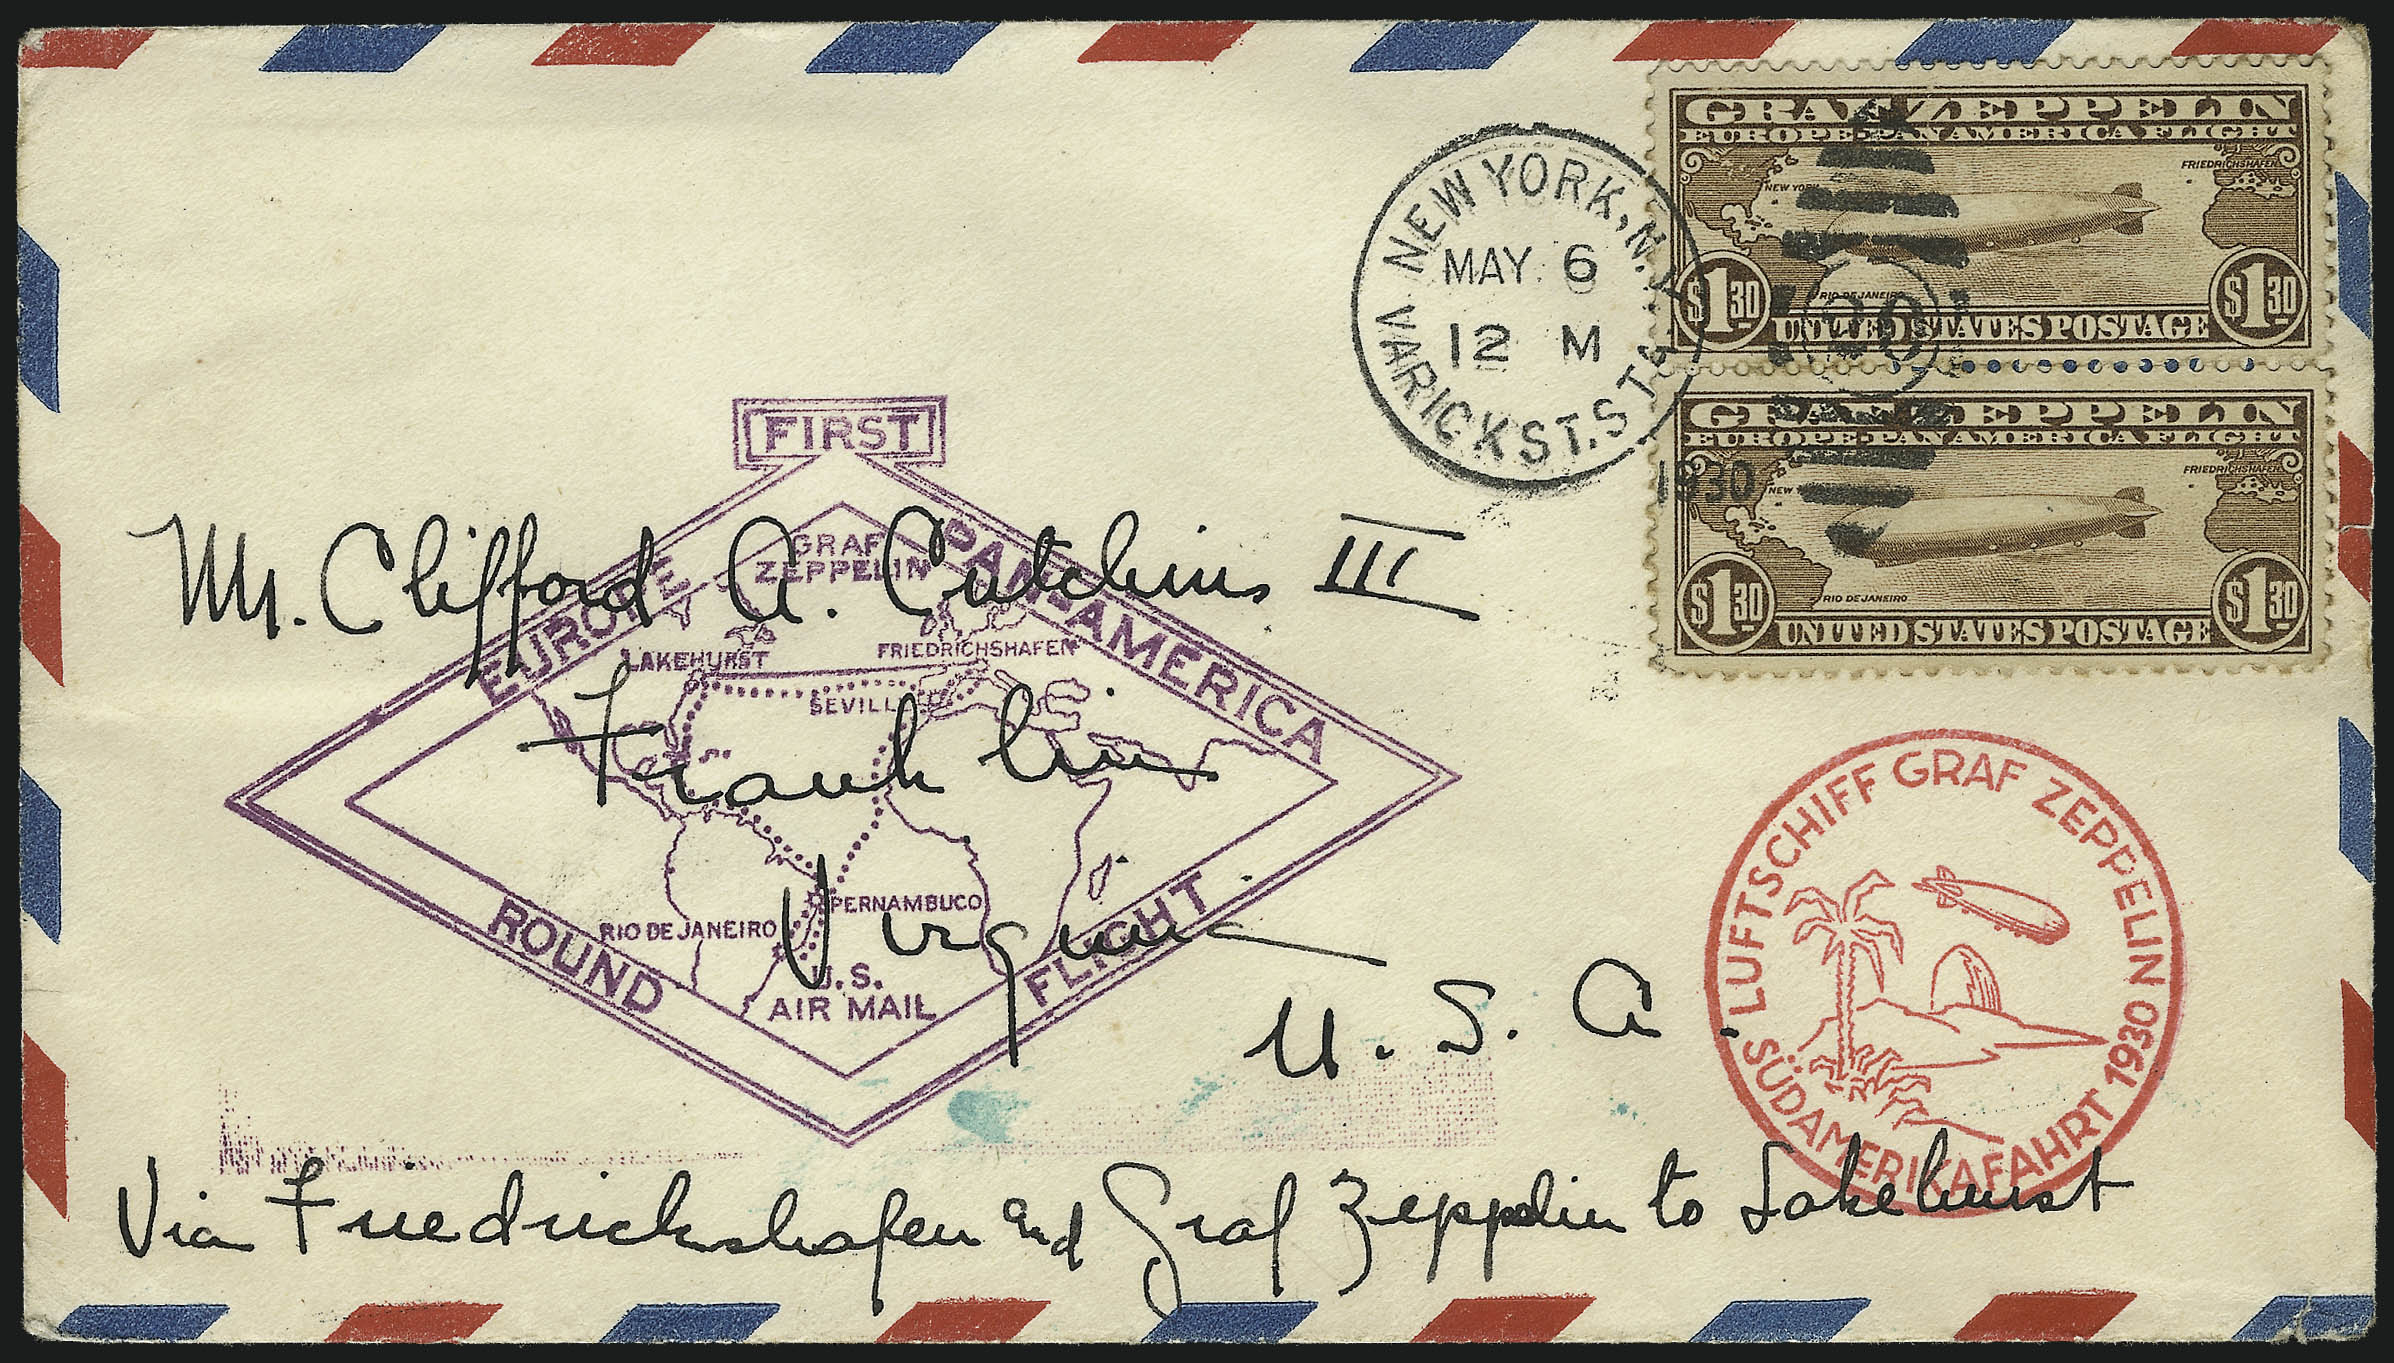 GRAF ZEPPELIN
EUROPE-PAN AMERICA FLIGHT
FRIEDRICHSHAFEN
NEW YORK
RIO DE JANEIRO
$1 30 $1 30
UNITED STATES POSTAGE
NEW YORK, N.Y.
MAY 6
12 M
VARICK ST. STA.
1930
GRAF ZEPPELIN
EUROPE-PAN AMERICA FLIGHT
FRIEDRICHSHAFEN
NEW
RIO DE JANEIRO
$1 30 $1 30
UNITED STATES POSTAGE
FIRST
EUROPE PAN-AMERICA
ROUND FLIGHT
GRAF
ZEPPELIN
LAKEHURST
FRIEDRICHSHAFEN
SEVILLE
PERNAMBUCO
RIO DE JANEIRO
U.S.
AIR MAIL
Mr. Clifford A. Cutchins III
Franklin
Virginia
U. S. A.
LUFTSCHIFF GRAF ZEPPELIN
SÜDAMERIKAFAHRT 1930
Via Friedrickshafen and Graf Zeppelin to Lakehurst